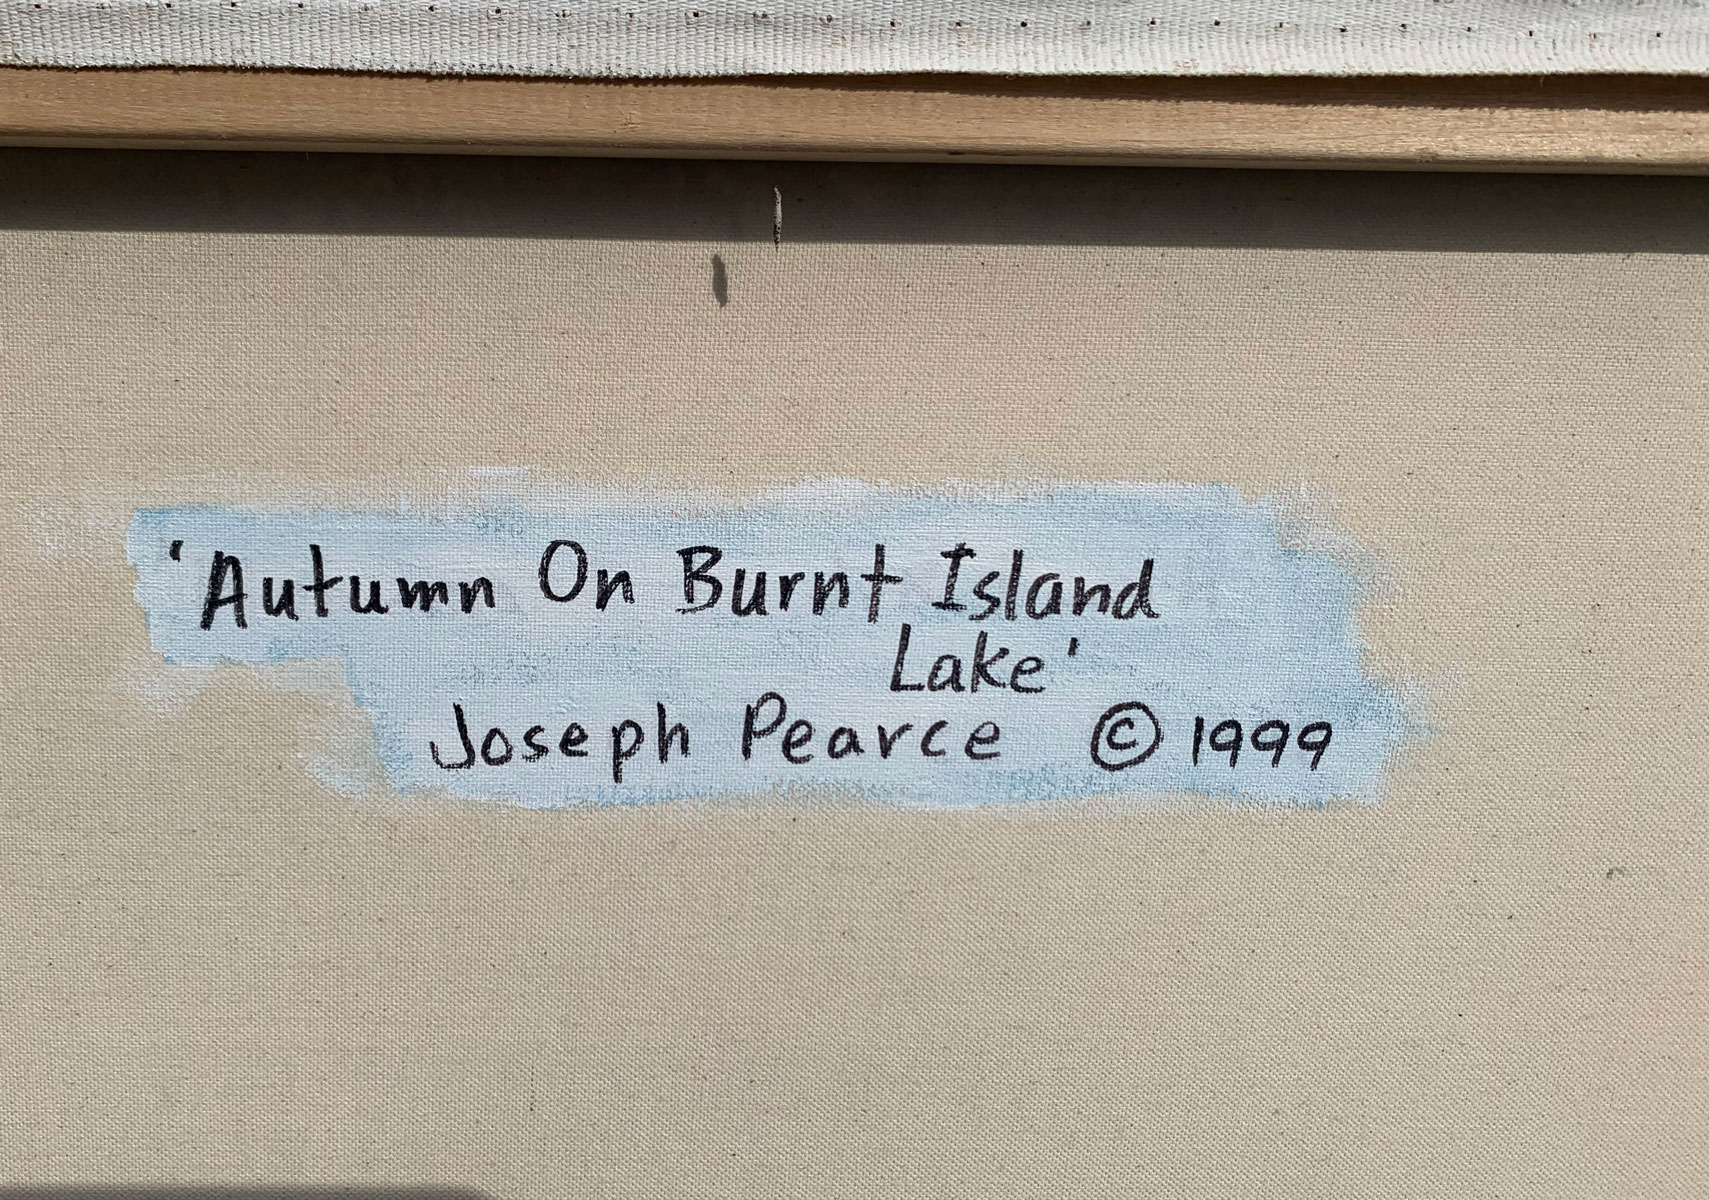 'Autumn On Burnt Island
Lake'
Joseph Pearce © 1999